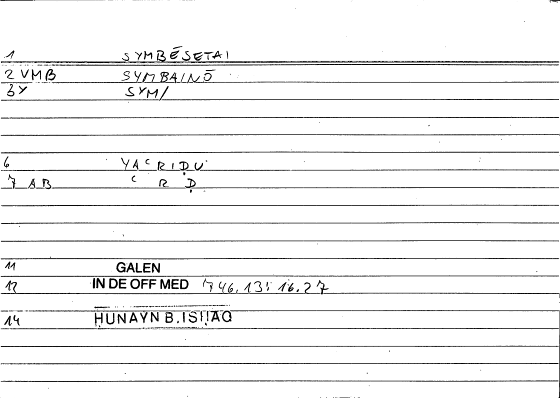 1 SYMBĒSETAI
2 VMB SYMBAINŌ
3 Y SYM/
6 YAʿRIḌU
7 AB ʿ R Ḍ
11 GALEN
12 IN DE OFF MED 746.13; 16.27
14 HUNAYN B.ISḤAQ